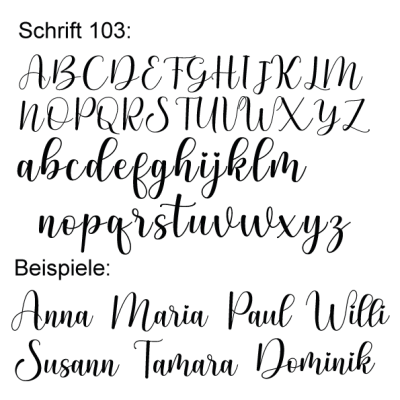 Schrift 103:
ABCDEFGHIJKLM
NOPQRSTUVWXYZ
abcdefghijklm
nopqrstuvwxyz
Beispiele:
Anna Maria Paul Willi
Susann Tamara Dominik